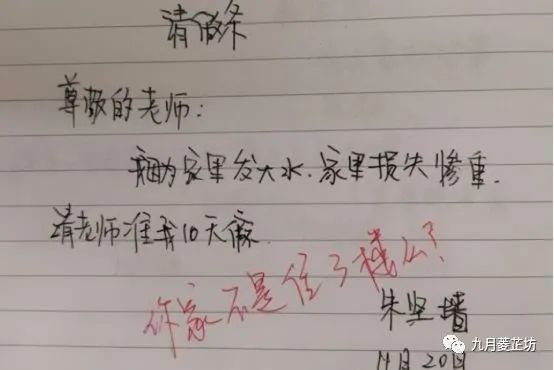 请假条
尊敬的老师:
我因为家里发大水.家里损失惨重.
请老师准我10天假.
你家不是住3楼么?
朱坚墙
11月20日
九月菱芷坊